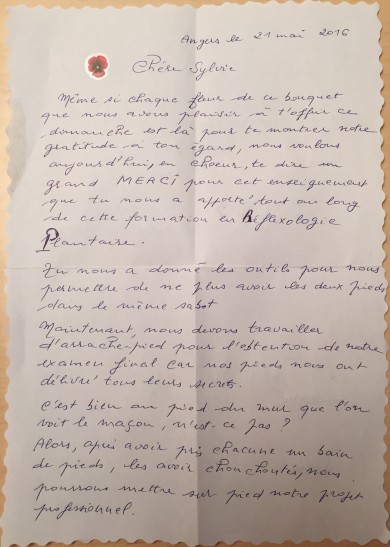 Angers le 21 mai 2016
Chère Sylvie
Même si chaque fleur de ce bouquet
que nous avons plaisir à t'offrir ce
dimanche est là pour te montrer notre
gratitude à ton égard, nous voulons
aujourd'hui, en choeur, te dire un
grand MERCI pour cet enseignement
que tu nous a apporté tout au long
de cette formation en Réflexologie
Plantaire.
Tu nous a donné les outils pour nous
permettre de ne plus avoir les deux pieds
dans le même sabot
Maintenant, nous devons travailler
d'arrache-pied pour l'obtention de notre
examen final car nos pieds nous ont
délivré tous leurs secrets.
C'est bien au pied du mur que l'on
voit le maçon, n'est-ce pas ?
Alors, après avoir pris chacune un bain
de pieds, les avoir chouchoutés, nous
pourrons mettre sur pied notre projet
professionnel.